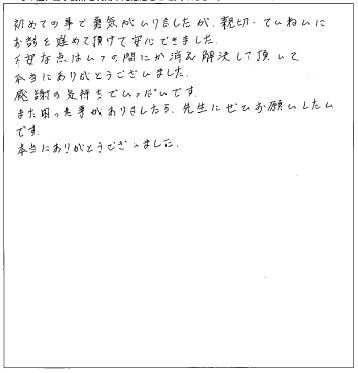 初めての事で勇気がいりましたが、親切・ていねいに
お話を進めて頂けて安心できました。
不安な点はいつの間にか消え解決して頂いて
本当にありがとうございました。
感謝の気持ちでいっぱいです。
また困った事がありましたら、先生にぜひお願いしたい
です。
本当にありがとうございました。